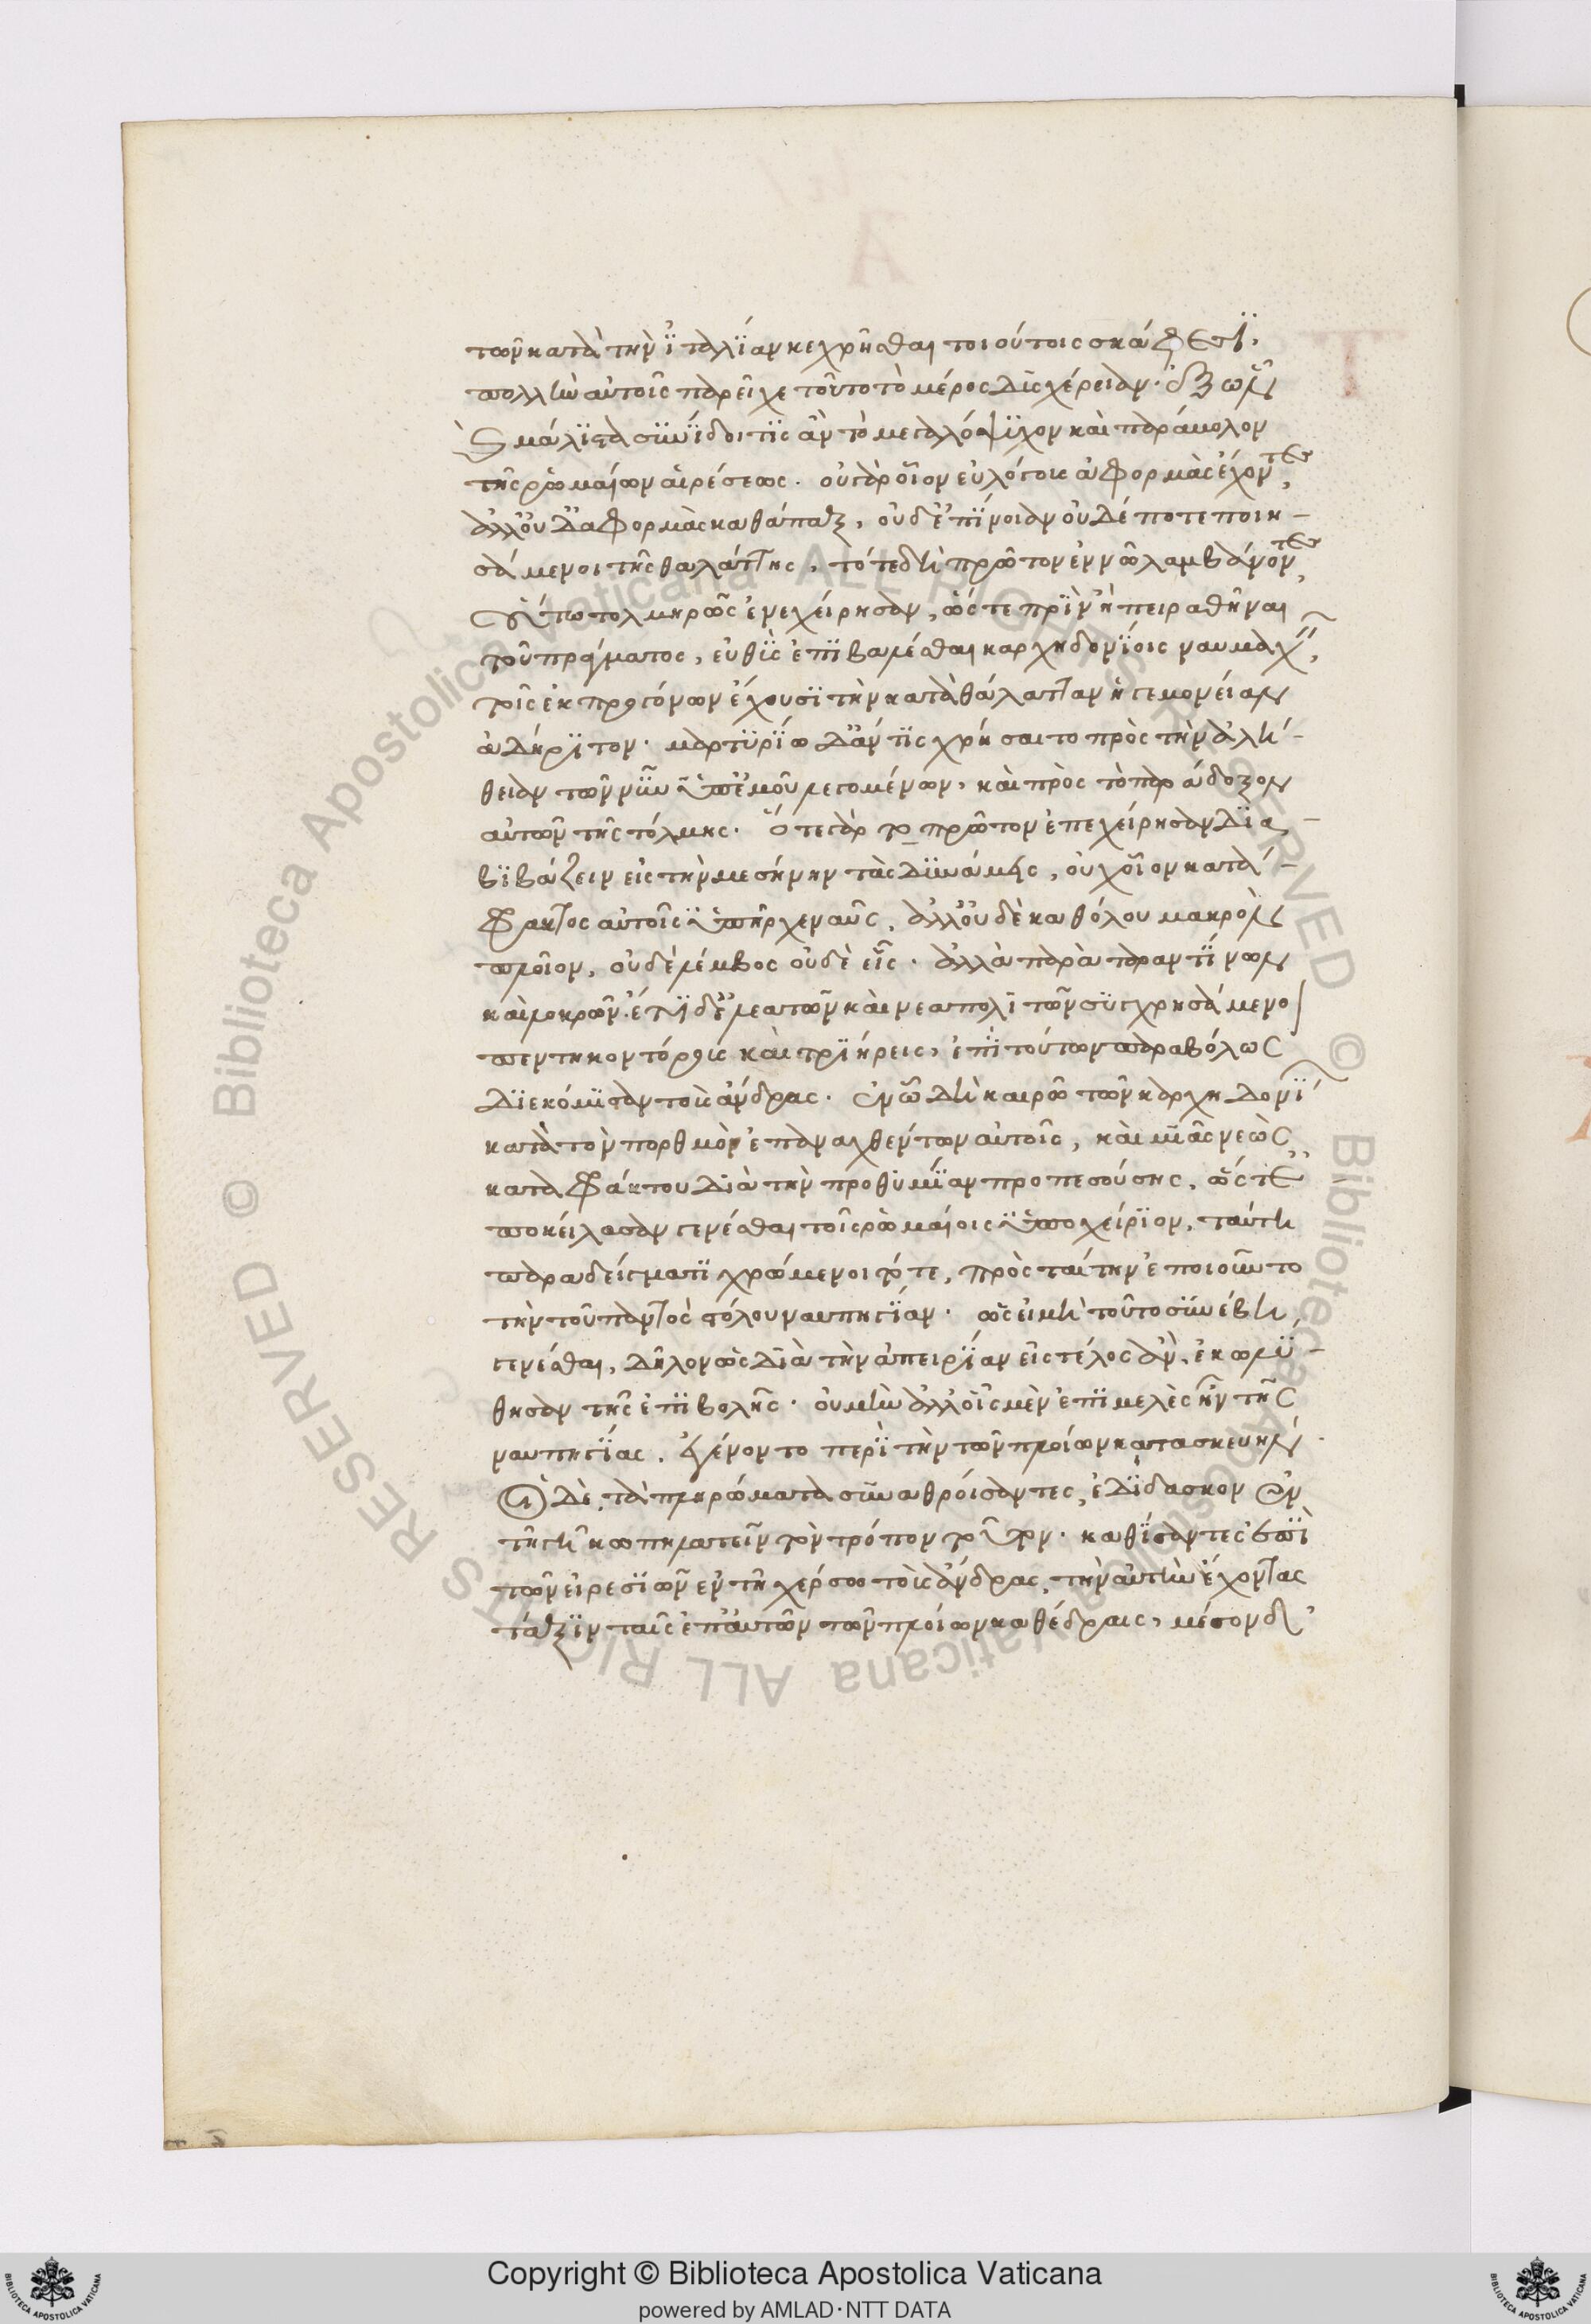 τῶν κατὰ τὴν ἰταλίαν κεχρῆσθαι τοιούτοις σκάφεσιν,
πολλὴν αὐτοῖς παρεῖχε τοῦτο τὸ μέρος δυσχέρειαν. ἐξ ὧν
καὶ μάλιστα συνίδοι τὶς ἂν τὸ μεγαλόψυχον καὶ παράμολον
τῆς ῥωμαίων αἱρέσεως. οὐ γὰρ οἷον εὐλόγους ἀφορμὰς ἔχοντες,
ἀλλ' οὐδ' ἀφορμὰς καθάπαξ, οὐδ' ἐπίνοιαν οὐδέποτε ποιη-
σάμενοι τῆς θαλάττης, τότε δὴ πρῶτον ἐν νῶ λαμβάνοντες,
οὕτω τολμηρῶς ἐνεχείρησαν, ὥστε πρὶν ἢ πειραθῆναι
τοῦ πράγματος, εὐθὺς ἐπιβαλέσθαι καρχηδονίοις ναυμαχεῖν,
τοῖς ἐκ προγόνων ἔχουσι τὴν κατὰ θάλατταν ἡγεμονείαν
ἀδήριτον. μαρτυρίω δ' ἄν τις χρήσαιτο πρὸς τὴν ἀλή-
θειαν τῶν νῦν ὑπ' ἐμοῦ λεγομένων, καὶ πρὸς τὸ παράδοξον
αὐτῶν τῆς τόλμης. ὅτε γὰρ τὸ πρῶτον ἐπεχείρησαν δια-
βιβάζειν εἰς τὴν μεσήνην τὰς δυνάμεις, οὐχ οἷον κατά-
φρακτος αὐτοῖς ὑπῆρχεν αῦς, ἀλλ' οὐδὲ καθόλου μακρὸν
πλοῖον, οὐδὲ λέμβος οὐδὲ εἷς. ἀλλὰ παρὰ ταραντίνων
καὶ λοκρῶν. ἔτι δ' ἐλεατῶν καὶ νεαπολιτῶν συγχρησάμενοι
πεντηκοντόρους καὶ τριήρεις, ἐπὶ τούτων παραβόλως
διεκόμισαν τοὺς ἄνδρας. ἐν ὧ δὴ καιρῶ τῶν καρχηδονίων
κατὰ τὸν πορθμὸν ἐπαναχθέντων αὐτοῖς, καὶ μιᾶς νεὼς
καταφράκτου διὰ τὴν προθυμίαν προπεσούσης, ὥστ'
ἐποκείλασαν γενέσθαι τοῖς ῥωμαίοις ὑποχείριον, ταύτη
παραδείγματι χρώμενοι τότε, πρὸς ταύτην ἐποιοῦντο
τὴν τοῦ παντὸς στόλου ναυπηγίαν. ὡς εἰ μὴ τοῦτο συνέβη
γενέσθαι, δῆλον ὡς διὰ τὴν ἀπειρίαν εἰς τέλος ἂν, ἐκωλύ-
θησαν τῆς ἐπιβολῆς. οὐ μὴν ἀλλ' οἷς μὲν ἐπιμελὲς ἦν τῆς
ναυπηγίας, ἐγένοντο περὶ τὴν τῶν πλοίων κατασκευήν.
οἱ δὲ, τὰ πληρώματα συναθροίσαντες, ἐδίδασκον ἐν
τῆ γῆ κωπηλατεῖν τὸν τρόπον τοῦτον. καθίσαντες ἐπὶ
τῶν εἰρεσιῶν ἐν τῆ χέρσω τοὺς ἄνδρας, τὴν αὐτὴν ἔχοντας
τάξιν ταῖς ἐπ' αὐτῶν τῶν πλοίων καθέδραις, μέσον δ'
Copyright © Biblioteca Apostolica Vaticana
powered by AMLAD·NTT DATA